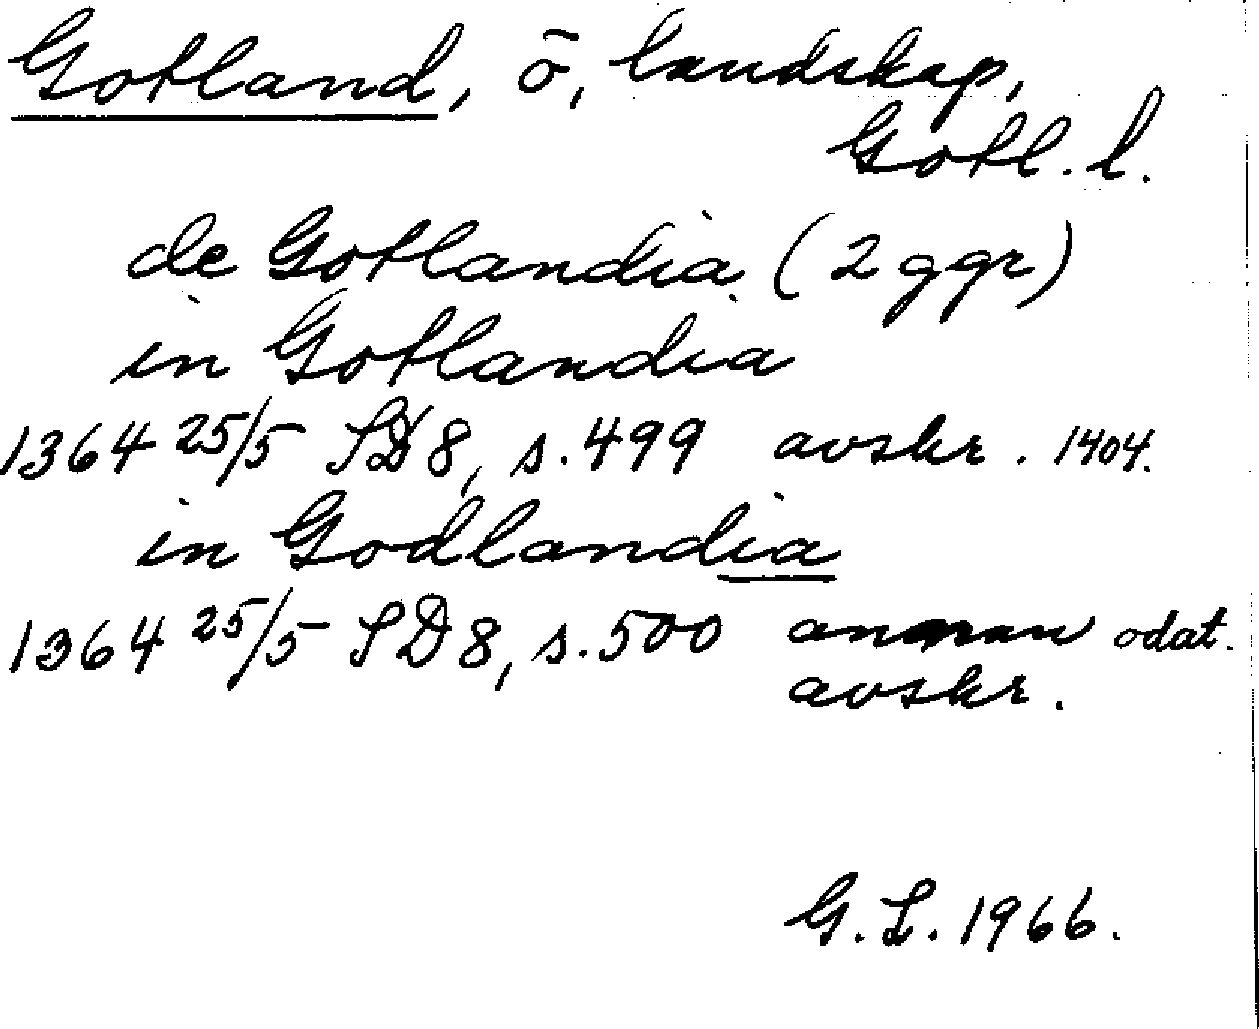 Gotland, ö, landskap,
Gotl. l.
de Gotlandia (2 ggr)
in Gotlandia
1364 25/5 SD8, s.499 avskr. 1404.
in Godlandia
1364 25/5 SD8, s.500 annan odat.
avskr.
G.L. 1966.